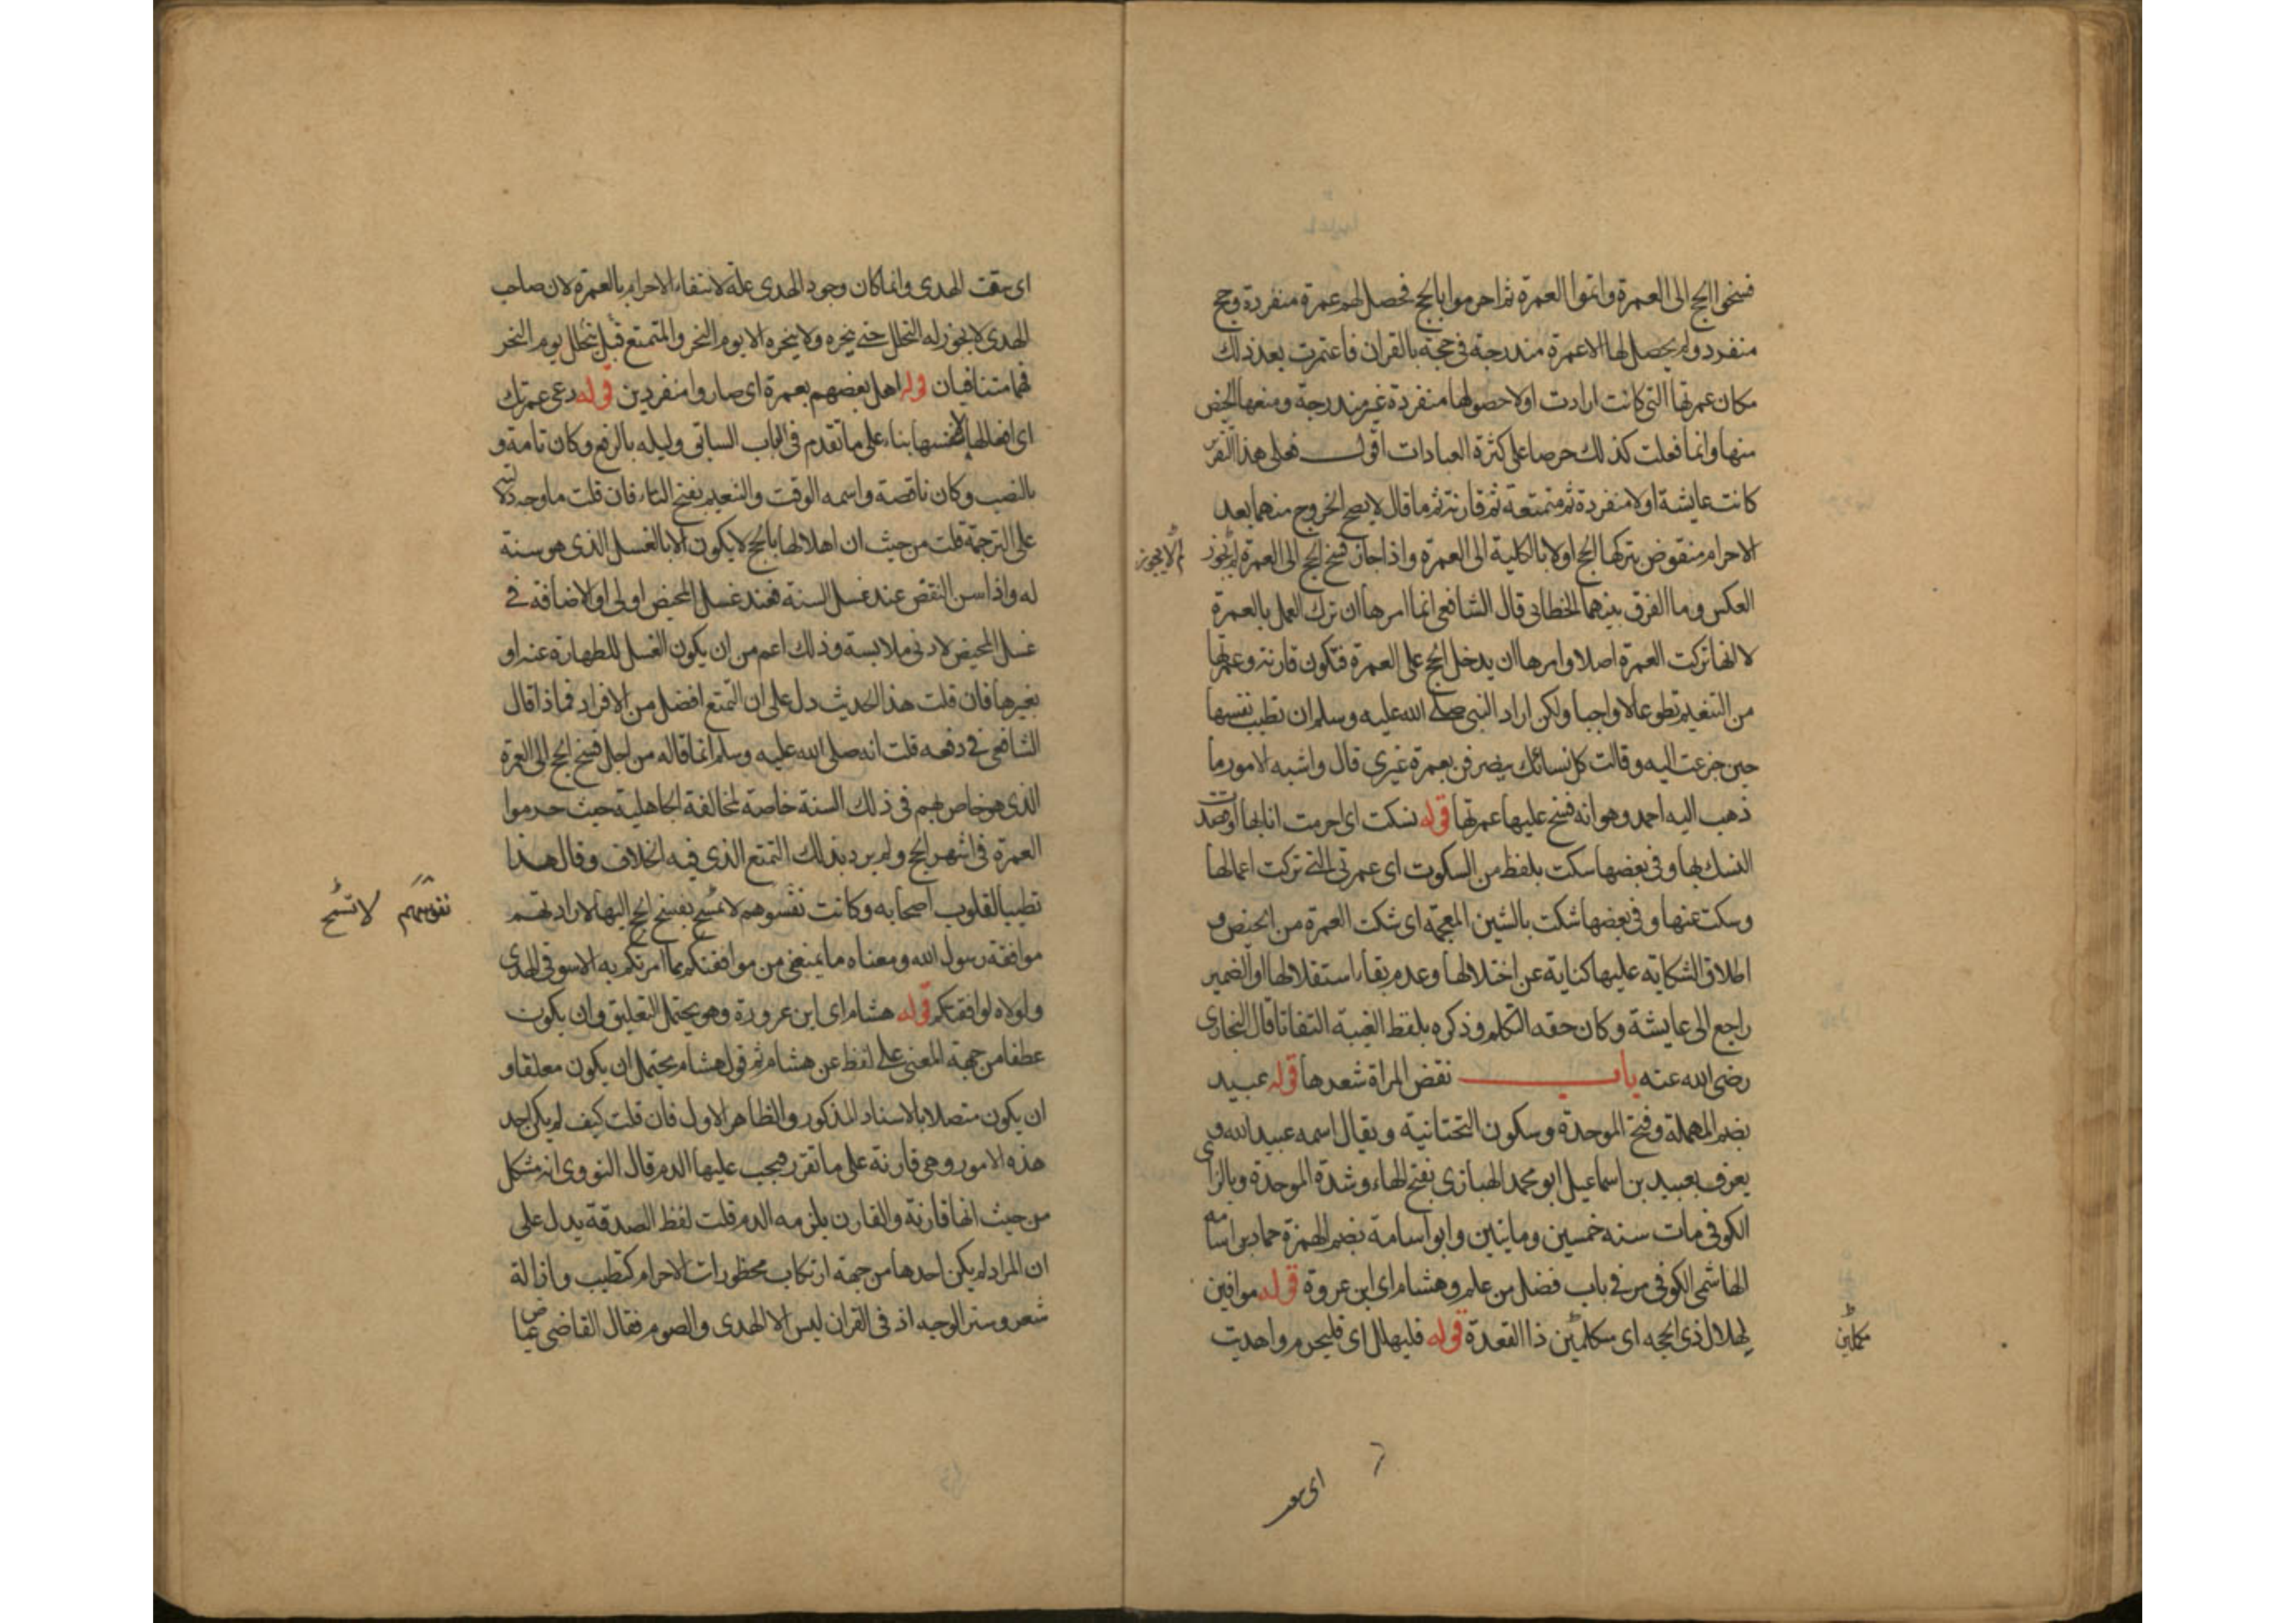 فسخوا الحج الى العمرة واتموا العمرة ثم احرموا بالحج فحصل لهم عمرة منفردة وحج
منفرد ولم يحصل لها الا عمرة مندرجة فى حجة بالقران فاعتمرت بعد ذلك
مكان عمرتها التى كانت ارادت اولا حصولها منفردة غير مندرجة ومنعها الحيض
منها وانما فعلت كذلك حرصا على كثرة العبادات اقول فعلى هذا التقرير
كانت عايشة اولا منفردة ثم متمتعة ثم قارنة ثم ما قال لا يصح الخروج منهما بعد
الاحرام منقوض بتركها الحج اولا بالكلية الى العمرة واذا جاز فسخ الحج الى العمرة لم لا يجوز
لم لا يجوز
العكس وما الفرق بينهما الخطابى قال الشافعى انما امرها ان تترك العمل بالعمرة
لا انها تركت العمرة اصلا وامرها ان يدخل الحج على العمرة فتكون قارنة وعمرتها
من التنعيم تطوعا لا واجبا ولكن اراد النبى صلى الله عليه وسلم ان تطيب نفسها
حين جزعت اليه وقالت كل نسائك ينصرفن بعمرة غيرى قال واشبه الامور ما
ذهب اليه احمد وهو انه فسخ عليها عمرتها قوله نسكت اى احرمت انا بها او قصدت
النسك بها وفى بعضها سكت بلفظ من السكوت اى عمرتى التى تركت اعمالها
وسكت عنها وفى بعضها شكت بالشين المعجمة اى شكت العمرة من الحيض و
اطلاق الشكاية عليها كناية عن اختلالها وعدم بقاء استقلالها او الضمير
راجع الى عايشة وكان حقه التكلم وذكره بلفظ الغيبة التفاتا قال البخارى
رضى الله عنه باب نقض المراة شعرها قوله عبيد
بضم المهملة وفتح الموحدة وسكون التحتانية ويقال اسمه عبيد الله و
يعرف بعبيد بن اسماعيل ابو محمد الهبارى بفتح الهاء وشدة الموحدة وبالزاى
الكوفى مات سنة خمسين وماتين وابو اسامة بضم الهمزة حماد بن اسامة
الهاشمى الكوفى مر فى باب فضل من علم وهشام اى ابن عروة قوله موافين
لهلال ذى الحجه اى مكملين ذا القعدة قوله فليهلل اى فليحرم واهديت
مكملين
اى سقت
اى سقت الهدى وانما كان وجود الهدى علة لانتفاء الاحرام بالعمرة لان صاحب
الهدى لا يجوز له التحلل حتى ينحره ولا ينحره الا يوم النحر والمتمتع قبل يتحلل يوم النحر
فهما متنافيان قوله اهل بعضهم بعمرة اى صاروا منفردين قوله دعى عمرتك
اى افعالها لا نفسها بناء على ما تقدم فى الباب السابق وليله بالرفع وكان تامة و
بالنصب وكان ناقصة واسمه الوقت والتنعيم بفتح التاء فان قلت ما وجه دلالته
على الترجمة قلت من حيث ان اهلالها بالحج لا يكون الا بالغسل الذى هو سنة
له واذا سن النقض عند غسل السنة فعند غسل المحيض اولى او الاضافة فى
غسل المحيض لادنى ملابسة وذلك اعم من ان يكون الغسل للطهارة عنه او
بغيرها فان قلت هذا الحديث دل على ان التمتع افضل من الافراد فماذا قال
الشافعى فى دفعه قلت انه صلى الله عليه وسلم انما قاله من اجل فسخ الحج الى العمرة
الذى هو خاص بهم فى ذلك السنة خاصة لمخالفة الجاهلية حيث حرموا
العمرة فى اشهر الحج ولم يرد بذلك التمتع الذى فيه الخلاف وقال هذا
تطييبا لقلوب اصحابه وكانت نفوسهم لا تسمح بفسخ الحج اليها لارادتهم
نفوسهم لا تسمح
موافقة رسول الله ومعناه ما يمنعنى من موافقتكم بما امرتكم به الا سوقى الهدى
ولولاه لوافقتكم قوله هشام اى ابن عروة وهو يحتمل التعليق وان يكون
عطفا من جهة المعنى على لفظ عن هشام ثم قول هشام يحتمل ان يكون معلقا و
ان يكون متصلا بالاسناد المذكور والظاهر الاول فان قلت كيف لم يكن احد
هذه الامور وهى قارنة على ما تقرر فيجب عليها الدم قال النووى انه مشكل
من حيث انها قارنة والقارن يلزمه الدم قلت لفظ الصدقة يدل على
ان المراد لم يكن احدها من جهة ارتكاب محظورات الاحرام كتطيب وازالة
شعر وستر الوجه اذ فى القران ليس الا الهدى والصوم فقال القاضى عياض